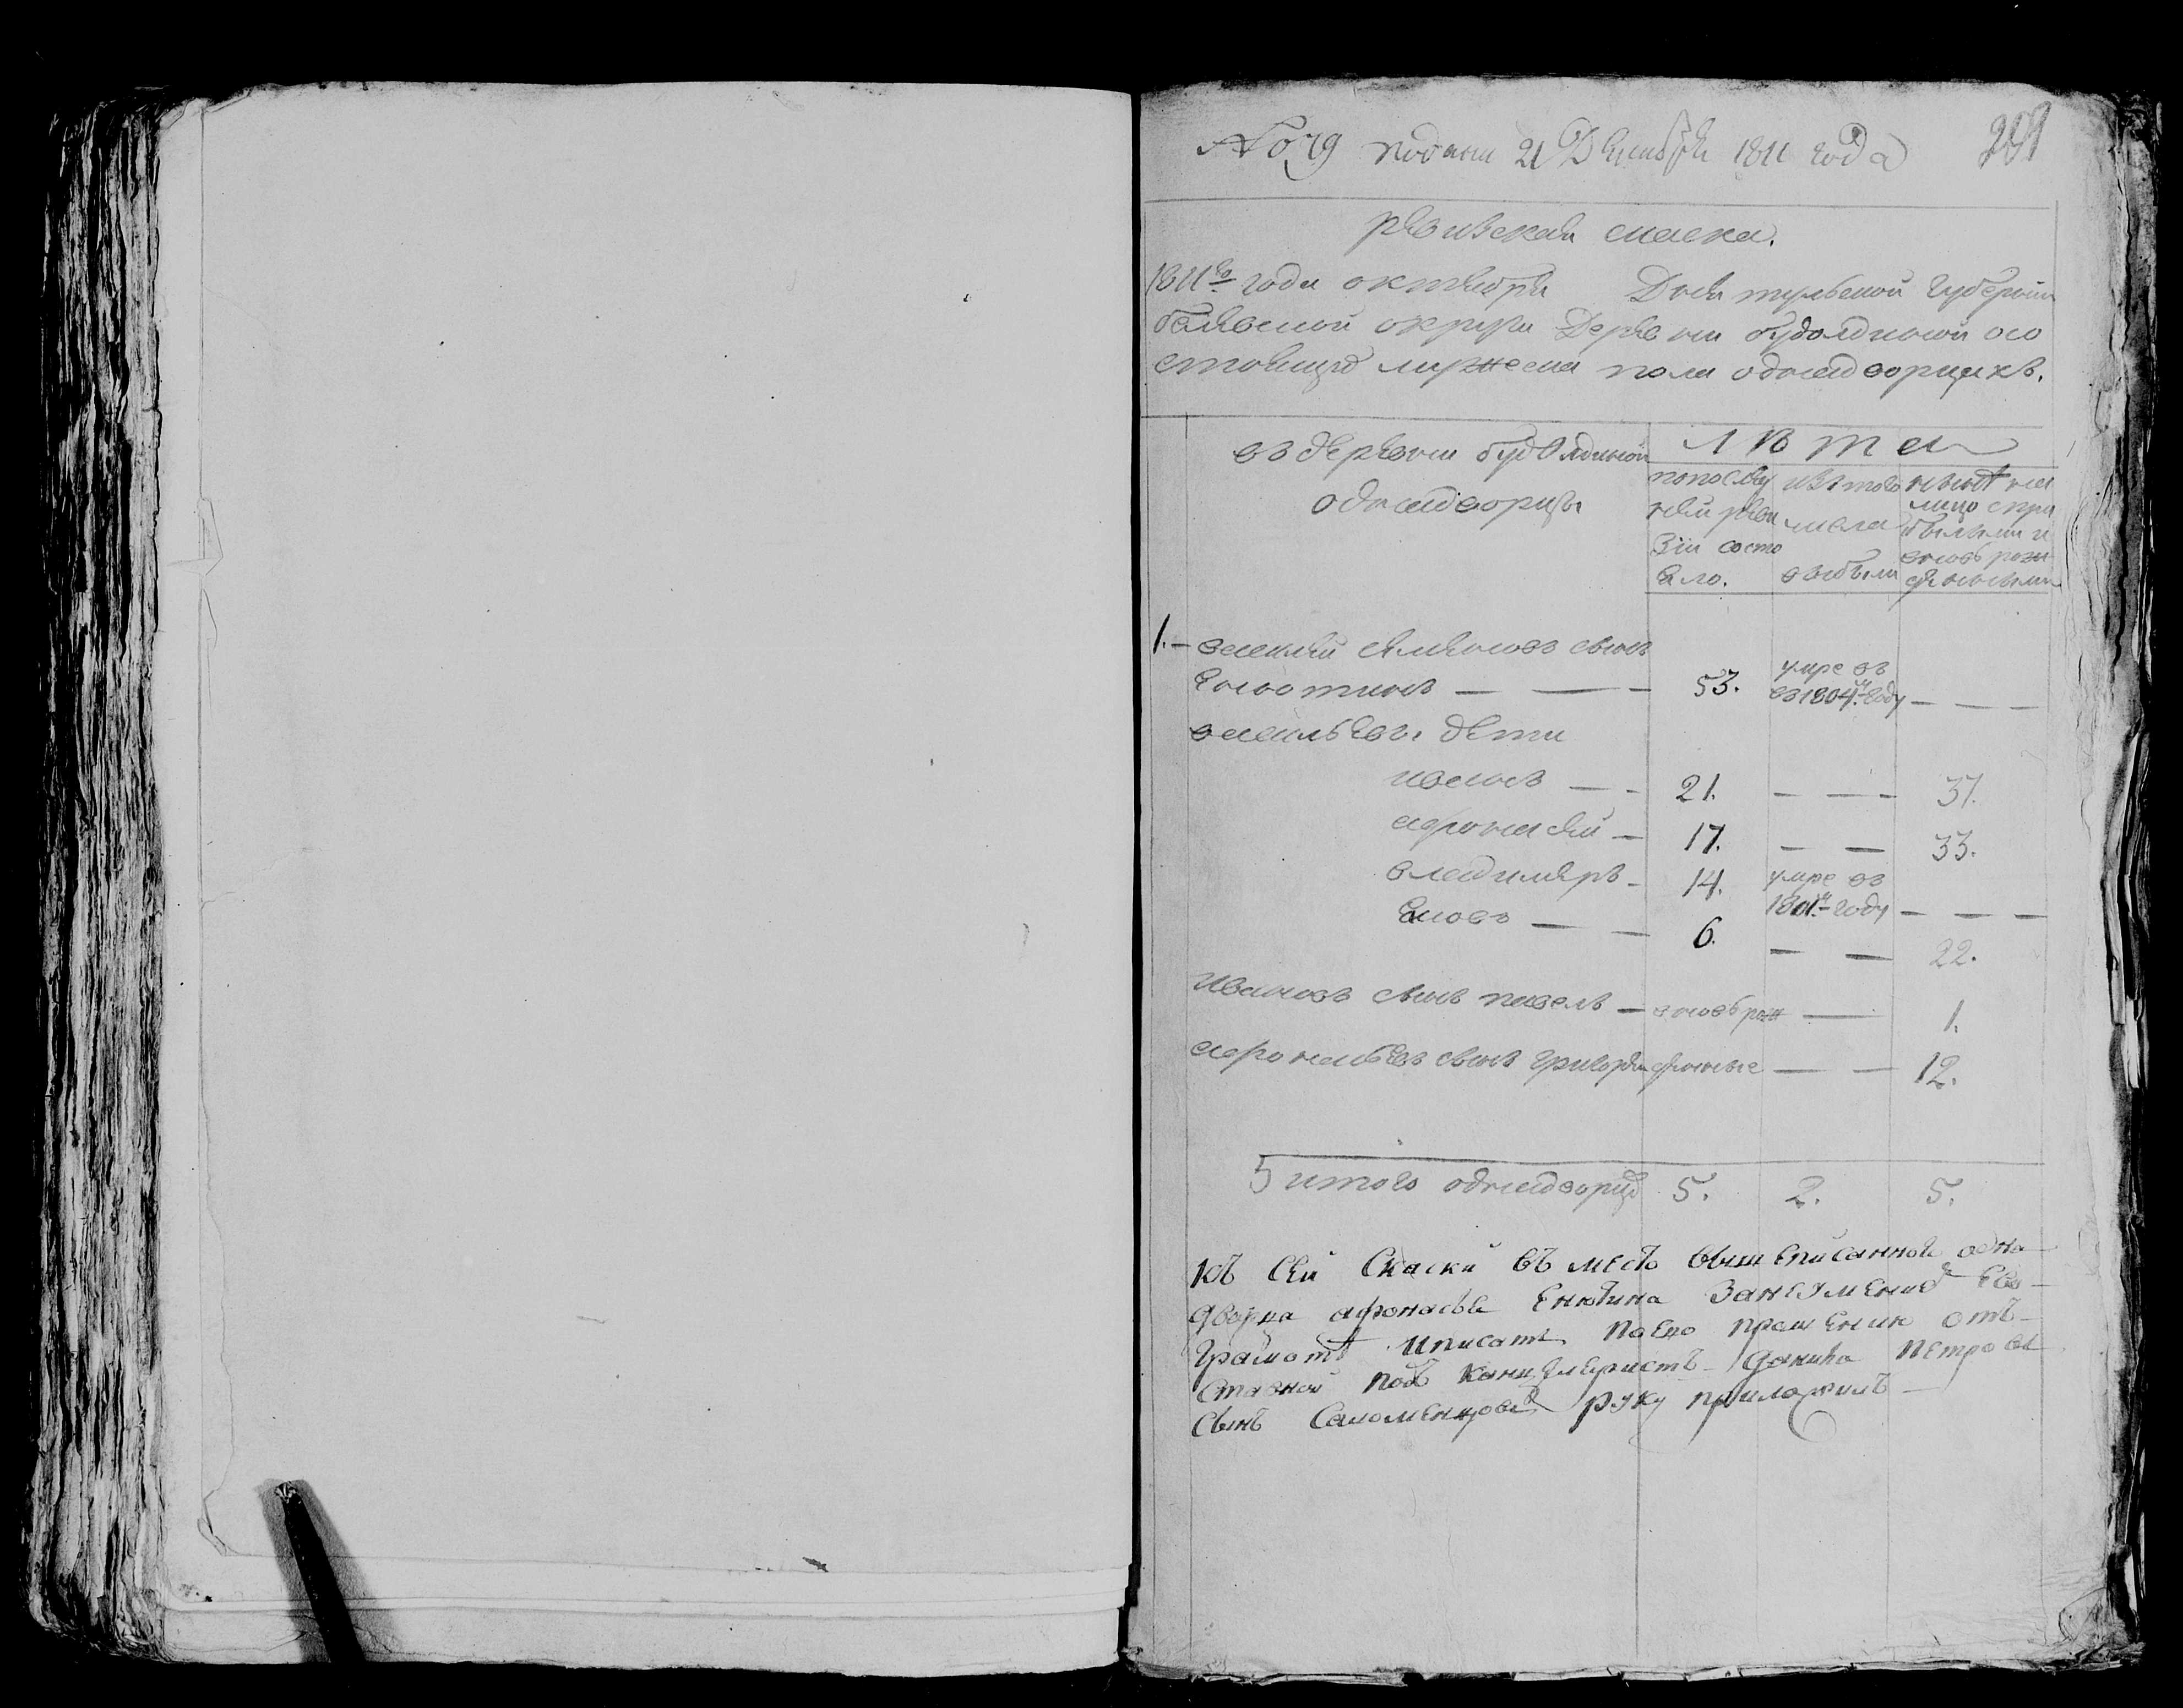 подана 21 Декабря 1811 года
ревизская скаска.
1811го года октября Дня тульской губернии
белевской округи деревни будолдиной осо
стоящих мужеска пола однодворцахъ.
въ деревни будолдиной
однодворцы
лѣта
попослѣд
ней реви
зіи состо
яло.
изътого
числа
выбыли
ныне на
лицо спри
былыми и
вновь рож
денными
1. василей семеновъ сынъ
Енютинъ 53. умре въ
въ 1804м году
васильевы дети
иванъ 21. 37.
афонасей 17. 33.
владимеръ 14. умре въ
1801м году
Яковъ 6. 22.
Ивановъ сынъ павелъ вновь рож 1.
афонасьевъ сынъ григорей денные 12.
итого однодворцовъ 5. 2. 5.
Къ сей скаски въместо вышеписанного одно
дворца афонасья Енютина занеумением ево
грамоте иписать поево прошению отъ
ставной подъ канцеляристъ данила петровъ
сынъ руку приложилъ